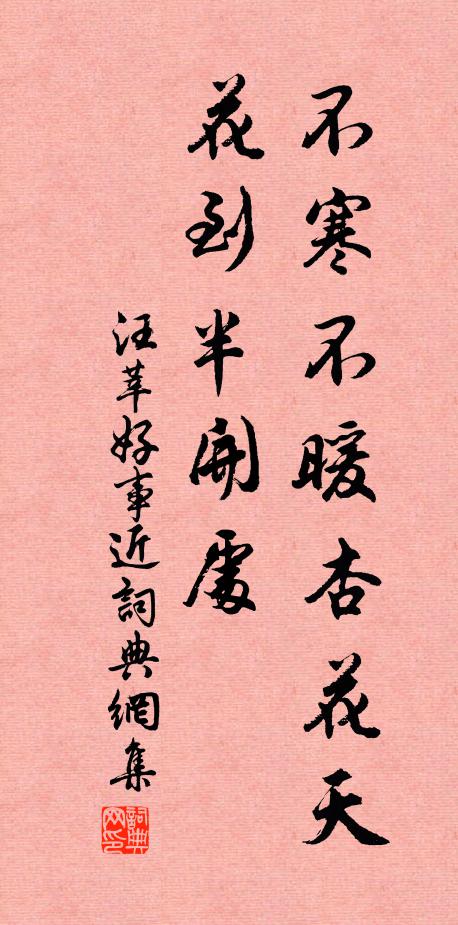 不寒不暖杏花天
花到半開處
汪莘好事近詞典網集
詞典网印